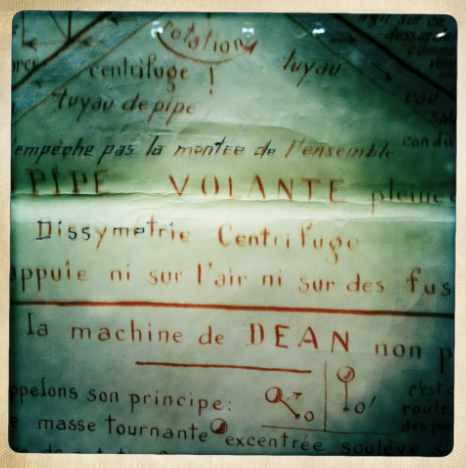 rotation
centrifuge !
tuyau
tuyau de pipe
empêche pas la montée de l'ensemble
PIPE VOLANTE pleine
Dissymétrie Centrifuge
appuie ni sur l'air ni sur des fus
la machine de DEAN non p
ppelons son principe:
o o'
masse tournante excentrée soulève